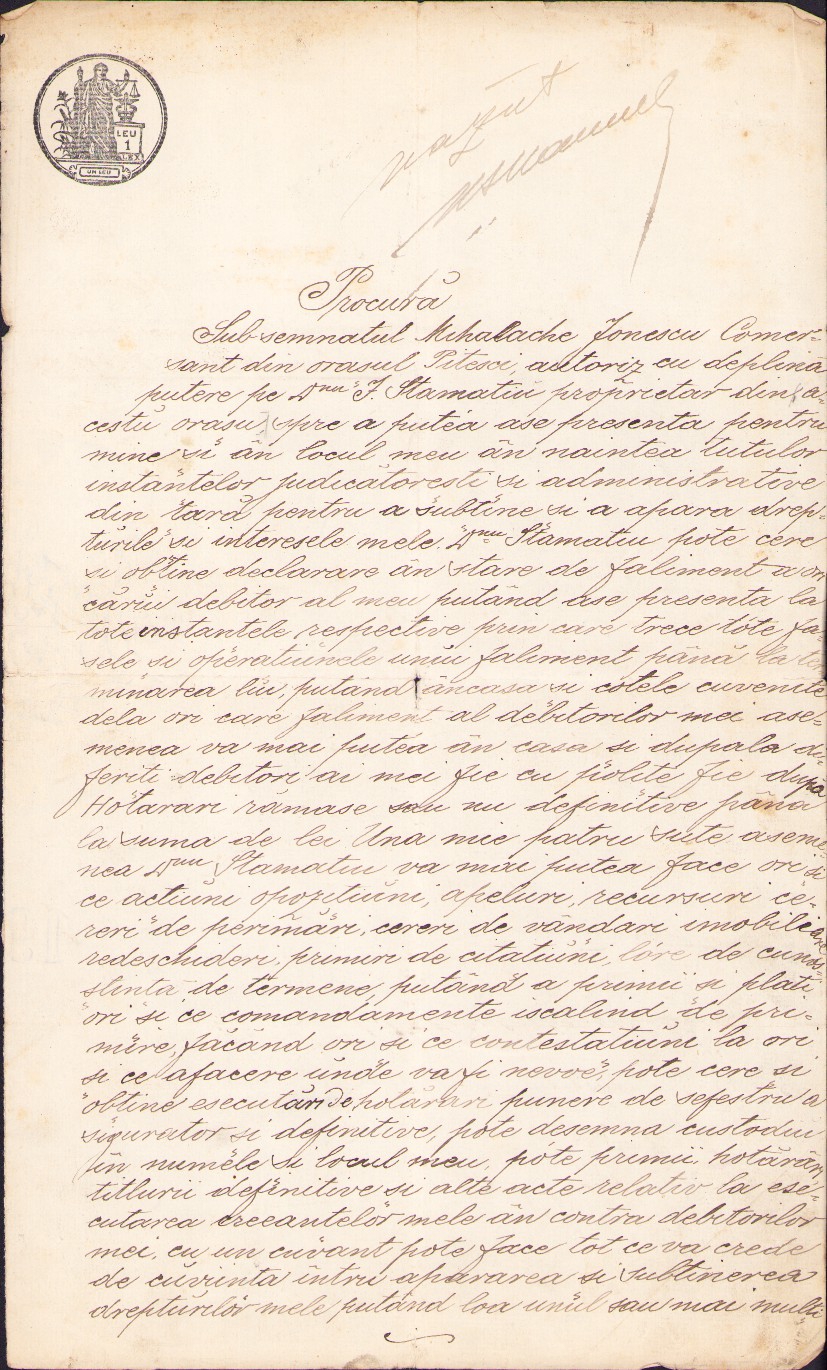 LEU
1
UN LEU
văzut
Procură
Subsemnatul Mihalache Jonescu Comer-
sant din orasul Pitesci, autoriz cu deplină
putere pe Dnu J. Stamatiu proprietar din a-
cestŭ orasu, spre a putéa ase presenta pentru
mine si ân locul meu ân naintea tutulor
instantelor judicătoresti si administrative
din tară pentru a subtine si a apara drep-
turile si interesele mele. Dnu Stamatiu pote cere
si obtine declarare ân stare de faliment a ori
căruĭ debitor al meu putând ase presenta la
tote instantele respective prin care trece tóte fa-
sele si operatiunele unui faliment până la ter
minarea luĭ, putând âncasa si cotele cuvenite
dela ori care faliment al debitorilor mei ase-
menea va mai putea ân casa si dupala di-
feriti debitori ai mei fie cu polite fie dupa
Hotarari rămase sau nu definitive până
la suma de lei Una mie patru sute aseme
nea Dnu Stamatiu va mai putea face ori si
ce actiuni opozitiuni, apeluri, recursuri ce-
reri de perimări, cereri de vândari imobiliare
redeschideri, primiri de citatiuni, lóre de cunos-
stinta de termene, putând a primii si plati
ori si ce comandamente iscalind de pri-
mire, făcând ori si ce contestatiuni la ori
si ce afacere unde va fi nevoe, pote cere si
obtine esecutări de hotărari punere de sefestru a
sigurator si definitive, pote desemna custodii
în numele si locul meu, pote primii hotărâri
titlurii definitive si alte acte relativ la ese-
cutarea creeantelor mele ân contra debitorilor
mei, cu un cuvant pote face tot ce va crede
de cuviinta întru apararea si subtinerea
drepturilor mele putând loa unul sau mai multi